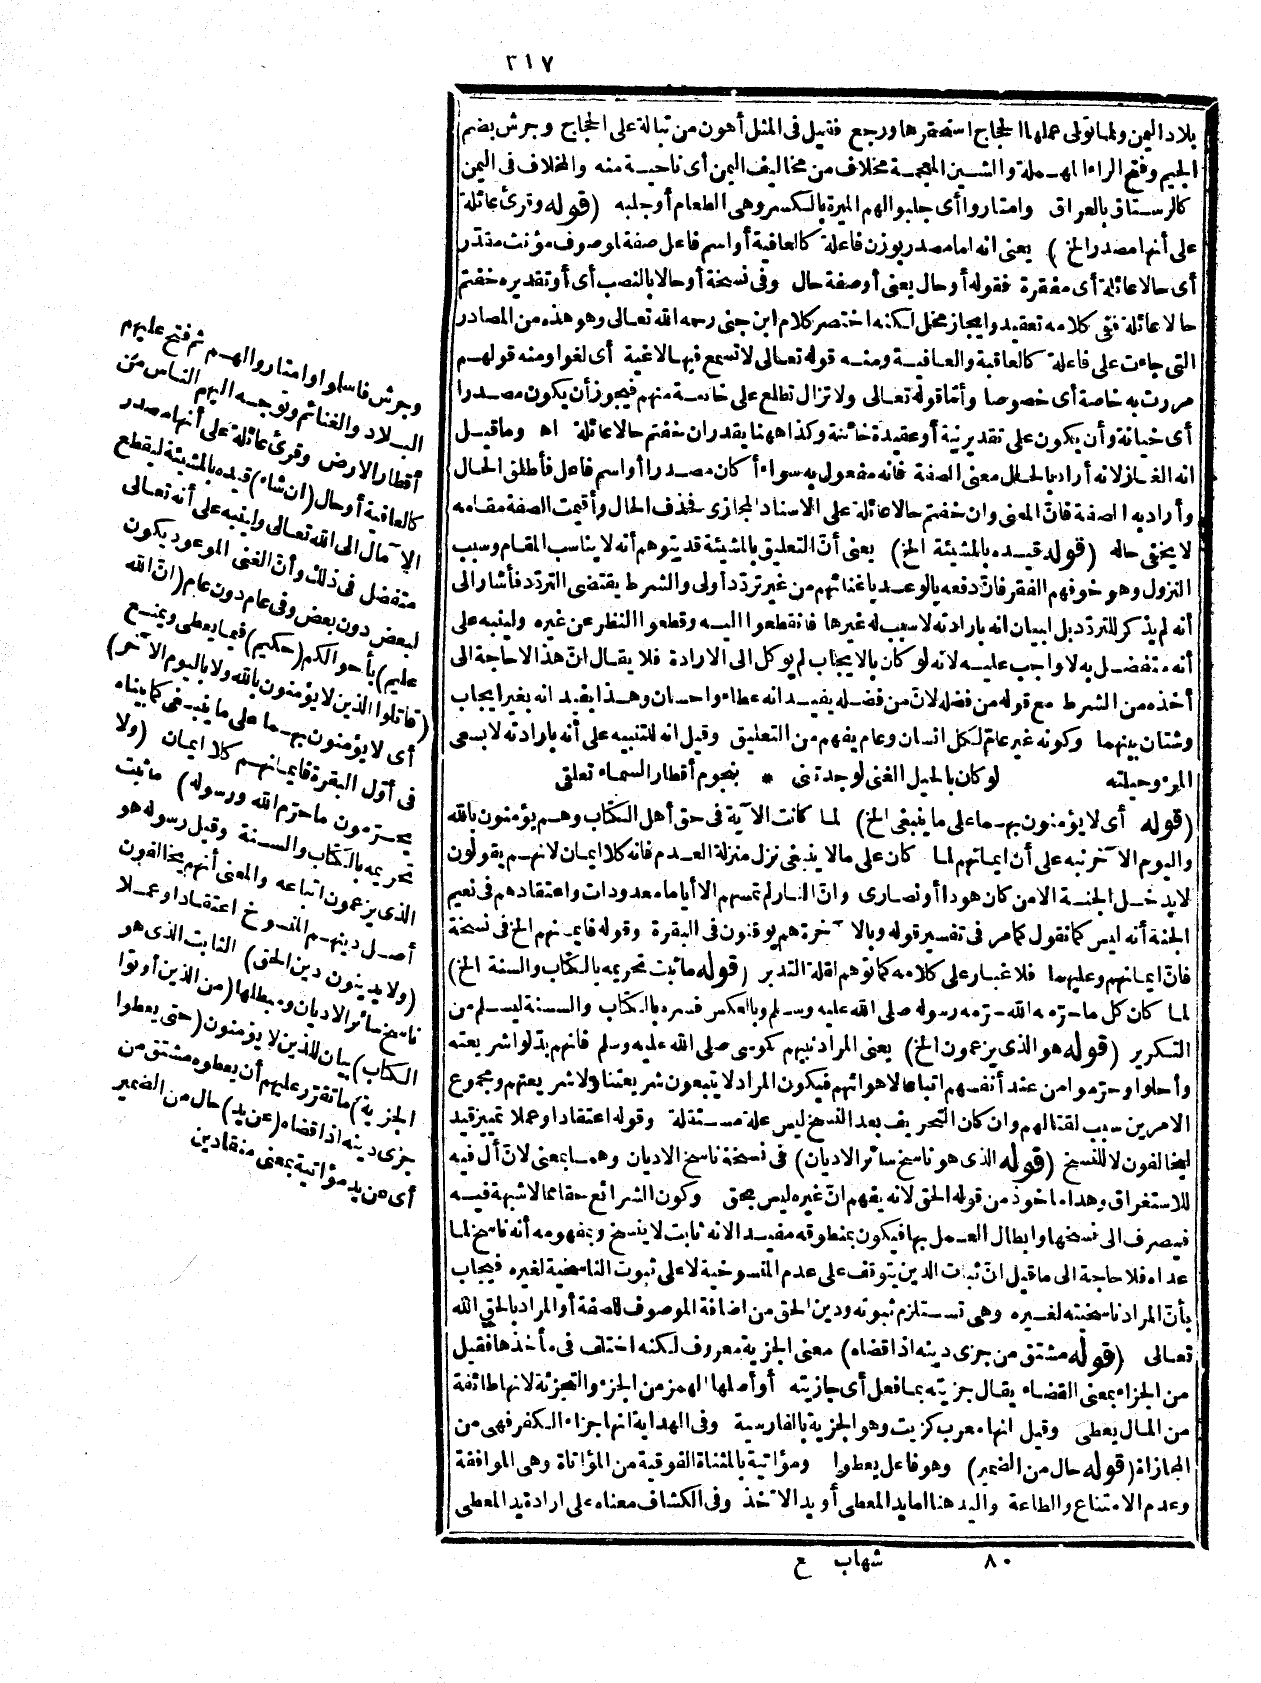 ٣١٧
بلاد اليمن ولما تولى عملها الحجاج استحقرها ورجع فقيل فى المثل أهون من تبالة على الحجاج وجرش بضم
الجيم وفتح الراء المهملة والشين المعجمة مخلاف من مخاليف اليمن أى ناحية منه والمخلاف فى اليمن
كالرستاق بالعراق وامتاروا أى جلبوا لهم الميرة بالكسر وهى الطعام أو جلبه (قوله وقرئ عائلة
على أنها مصدر الخ) يعنى انه اما مصدر بوزن فاعلة كالعافية أو اسم فاعل صفة لموصوف مؤنث مقدر
أى حالا عائلة أى مفقرة فقوله أو حال يعنى أو صفة حال وفى نسخة أو حالا بالنصب أى أو تقديره خفتم
حالا عائلة ففى كلامه تعقيد وايجاز مخل لكنه اختصر كلام ابن جنى رحمه الله تعالى وهو هذه من المصادر
التى جاءت على فاعلة كالعاقبة والعافية ومنه قوله تعالى لا تسمع فيها لاغية أى لغوا ومنه قولهم
مررت به خاصة أى خصوصا وأما قوله تعالى ولا تزال تطلع على خائنة منهم فيجوز أن يكون مصدرا
أى خيانة وأن يكون على تقدير نية أو عقيدة خائنة وكذا ههنا يقدر ان خفتم حالا عائلة اه وما قيل
انه الغاز لانه أراد بالحال معنى الصفة فانه مفعول به سواء أكان مصدرا أو اسم فاعل فأطلق الحال
وأراد به الصفة فانّ المعنى وان خفتم حالا عائلة على الاسناد المجازى فحذف الحال وأقيمت الصفة مقامه
لا يخفى حاله (قوله قيده بالمشيئة الخ) يعنى أنّ التعليق بالمشيئة قد يتوهم أنه لا يناسب المقام وسبب
النزول وهو خوفهم الفقر فانّ دفعه بالوعد باغنائهم من غير تردّد أولى والشرط يقتضى التردّد فأشار الى
أنه لم يذكر للتردّد بل لبيان انه بارادته لا سبب له غيرها فانقطعوا اليه وقطعوا النظر عن غيره ولينبه على
أنه متفضل به لا واجب عليه لانه لو كان بالايجاب لم يوكل الى الارادة فلا يقال انّ هذا لا حاجة الى
أخذه من الشرط مع قوله من فضله لانّ من فضله يفيد انه عطاء واحسان وهذا يفيد انه بغير ايجاب
وشتان بينهما وكونه غير عام لكل انسان وعام يفهم من التعليق وقيل انه للتنبيه على أنه بارادته لا بسعى
المرء وحيلته لو كان بالحيل الغنى لوجدتنى * بنجوم أقطار السماء تعلقى
(قوله أى لا يؤمنون بهما على ما ينبغى الخ) لما كانت الآية فى حق أهل الكتاب وهم يؤمنون بالله
واليوم الآخر نبه على أن ايمانهم لما كان على مالا ينبغى نزل منزلة العدم فانه كلا ايمان لانهم يقولون
لا يدخل الجنة الا من كان هودا أو نصارى وانّ النار لم تمسهم الا أياما معدودات واعتقادهم فى نعيم
الجنة أنه ليس كما نقول كما مر فى تفسير قوله وبالآخرة هم يوقنون فى البقرة وقوله فايمانهم الخ فى نسخة
فان ايمانهم وعليهما فلا غبار على كلامه كما توهم لقلة التدبر (قوله ما ثبت تحريمه بالكتاب والسنة الخ)
لما كان كل ما حرّمه الله حرّمه رسوله صلى الله عليه وسلم وبالعكس فسره بالكتاب والسنة ليسلم من
التكرير (قوله هو الذى يزعمون الخ) يعنى المراد نبيهم كموسى صلى الله عليه وسلم فانهم بدّلوا شريعته
وأحلوا وحرّموا من عند أنفسهم اتباعا لاهوائهم فيكون المراد لا يتبعون شريعتنا ولا شريعتهم ومجموع
الامرين سبب لقتالهم وان كان التحريف بعد النسخ ليس علة مستقلة وقوله اعتقادا وعملا تمييز قيد
ليخالفون لا للنسخ (قوله الذى هو ناسخ سائر الاديان) فى نسخة ناسخ الاديان وهما بمعنى لانّ أل فيه
للاستغراق وهذا ماخوذ من قوله الحق لانه يفهم انّ غيره ليس بحق وكون الشرائع حقا مما لا شبهة فيه
فيصرف الى نسخها وابطال العمل بها فيكون بمنطوقه مفيدا لانه ثابت لا ينسخ وبمفهومه أنه ناسخ لما
عداه فلا حاجة الى ما قيل انّ ثبات الدين يتوقف على عدم المنسوخية لا على ثبوت الناسخية لغيره فيجاب
بأنّ المراد ناسخيته لغيره وهى تستلزم ثبوته ودين الحق من اضافة الموصوف للصفة أو المراد بالحق الله
تعالى (قوله مشتق من جزى دينه اذا قضاه) معنى الجزية معروف لكنه اختلف فى مأخذها فقيل
من الجزاء بمعنى القضاء يقال جزيته بما فعل أى جازيته أو أصلها الهمز من الجزء والتجزئة لانها طائفة
من المال يعطى وقيل انها معرب كزيت وهو الجزية بالفارسية وفى الهداية انها جزاء الكفر فهى من
المجازاة (قوله حال من الضمير) وهو فاعل يعطوا ومؤاتية بالمثناة الفوقية من المؤاتاة وهى الموافقة
وعدم الامتناع والطاعة واليد هنا اما يد المعطى أو يد الآخذ وفى الكشاف معناه على ارادة يد المعطى
٨٠ شهاب ع
وجرش فاسلموا وامتاروا لهم ثم فتح عليهم
البلاد والغنائم وتوجه اليهم الناس من
أقطار الارض وقرئ عائلة على أنها مصدر
كالعافية أو حال (ان شاء) قيده بالمشيئة ليقطع
الآمال الى الله تعالى ولينبه على أنه تعالى
متفضل فى ذلك وأن الغنى الموعود يكون
لبعض دون بعض وفى عام دون عام (انّ الله
عليم) بأحوالكم (حكيم) فيما يعطى ويمنع
(قاتلوا الذين لا يؤمنون بالله ولا باليوم الآخر)
أى لا يؤمنون بهما على ما ينبغى كما بيناه
فى أوّل البقرة فايمانهم كلا ايمان (ولا
يحرّمون ما حرّم الله ورسوله) ما ثبت
تحريمه بالكتاب والسنة وقيل رسوله هو
الذى يزعمون اتباعه والمعنى أنهم يخالفون
أصل دينهم المنسوخ اعتقادا وعملا
(ولا يدينون دين الحق) الثابت الذى هو
ناسخ سائر الاديان ومبطلها (من الذين أوتوا
الكتاب) بيان للذين لا يؤمنون (حتى يعطوا
الجزية) ما تقرر عليهم أن يعطوه مشتق من
جزى دينه اذا قضاه (عن يد) حال من الضمير
أى عن يد مؤاتية بمعنى منقادين